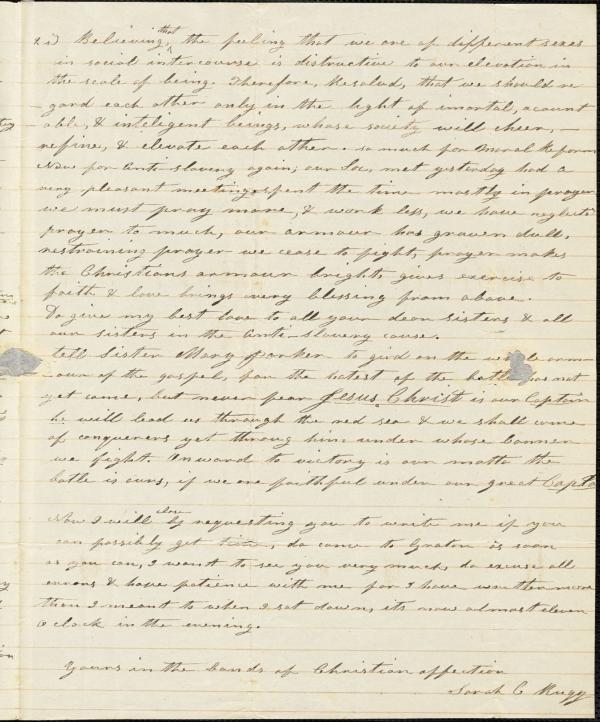 2d Believing, that the feeling that we are of different sexes
in social intercourse is distructive to our elevation in
the scale of being. Therefore, Resolved, that we should re
gard each other only in the light of imortal, acount
able, & inteligent beings, whose society will cheer,
refine, & elevate each other. so much for Moral Reform
Now for Anti-slavery again; our Soc, met yesterday had a
very pleasant meeting spent the time mostly in prayer
we must pray more, & work less, we have neglected
prayer to much, our armour has grawen dull,
restraining prayer we cease to fight, prayer makes
the Christians armour bright, gives exercise to
faith & love brings every blessing from above.
Do give my best love to all your dear sisters & all
our sisters in the Anti-slavery cause.
tell Sister Mary Parker to gird on the arm-
our of the gospel, for the hotest of the has not
yet come, but never fear Jesus Christ is our Captain
he will lead us through the red sea & we shall come
of conquerers yet throug him under whose banner
we fight. Onward to victory is our motto the
batle is ours, if we are faithful under our great Capta
Now I will close by requesting you to write me if you
can possibly get time, do come to Groton as soon
as you can, I want to see you very much, do excuse all
errors & have patience with me for I have written more
than I meant to when I sat down, its now almost eleven
O clock in the evening.
Yours in the bands of Christian affection
Sarah C Rugg